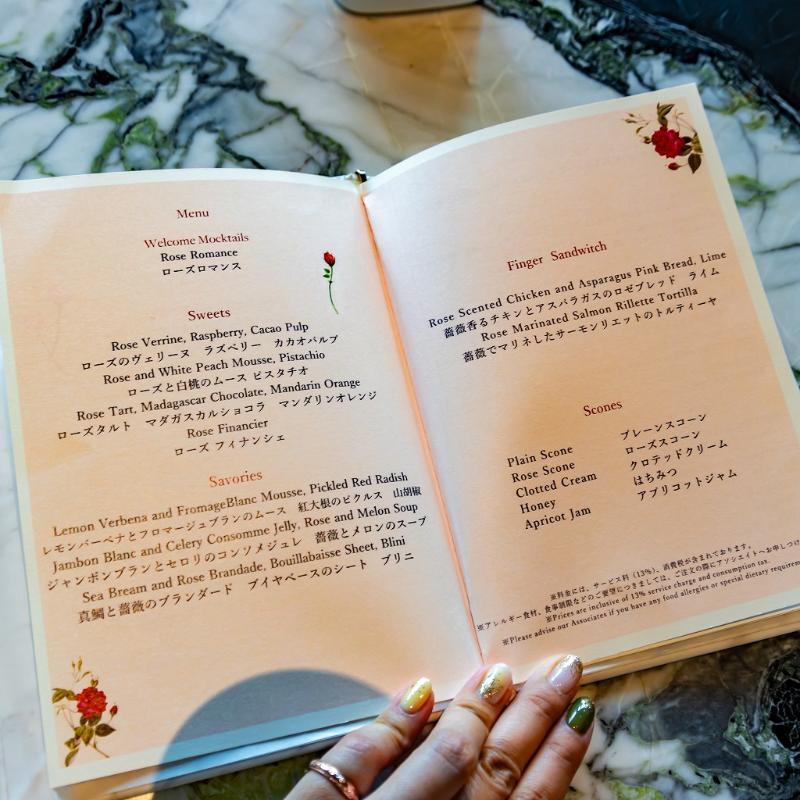 Menu
Welcome Mocktails
Rose Romance
ローズロマンス
Sweets
Rose Verrine, Raspberry, Cacao Pulp
ローズのヴェリーヌ　ラズベリー　カカオパルプ
Rose and White Peach Mousse, Pistachio
ローズと白桃のムース ピスタチオ
Rose Tart, Madagascar Chocolate, Mandarin Orange
ローズタルト　マダガスカルショコラ　マンダリンオレンジ
Rose Financier
ローズ フィナンシェ
Savories
Lemon Verbena and FromageBlanc Mousse, Pickled Red Radish
レモンバーベナとフロマージュブランのムース　紅大根のピクルス　山胡椒
Jambon Blanc and Celery Consomme Jelly, Rose and Melon Soup
ジャンボンブランとセロリのコンソメジュレ　薔薇とメロンのスープ
Sea Bream and Rose Brandade, Bouillabaisse Sheet, Blini
真鯛と薔薇のブランダード　ブイヤベースのシート　ブリニ
Finger Sandwitch
Rose Scented Chicken and Asparagus Pink Bread, Lime
薔薇香るチキンとアスパラガスのロゼブレッド　ライム
Rose Marinated Salmon Rillette Tortilla
薔薇でマリネしたサーモンリエットのトルティーヤ
Scones
Plain Scone　プレーンスコーン
Rose Scone　ローズスコーン
Clotted Cream　クロテッドクリーム
Honey　はちみつ
Apricot Jam　アプリコットジャム
※料金には、サービス料（13%）、消費税が含まれております。
※アレルギー食材、食事制限などのご要望につきましては、ご注文の際にアソシエイトへお申しつけ
※Prices are inclusive of 13% service charge and consumption tax.
※Please advise our Associates if you have any food allergies or special dietary